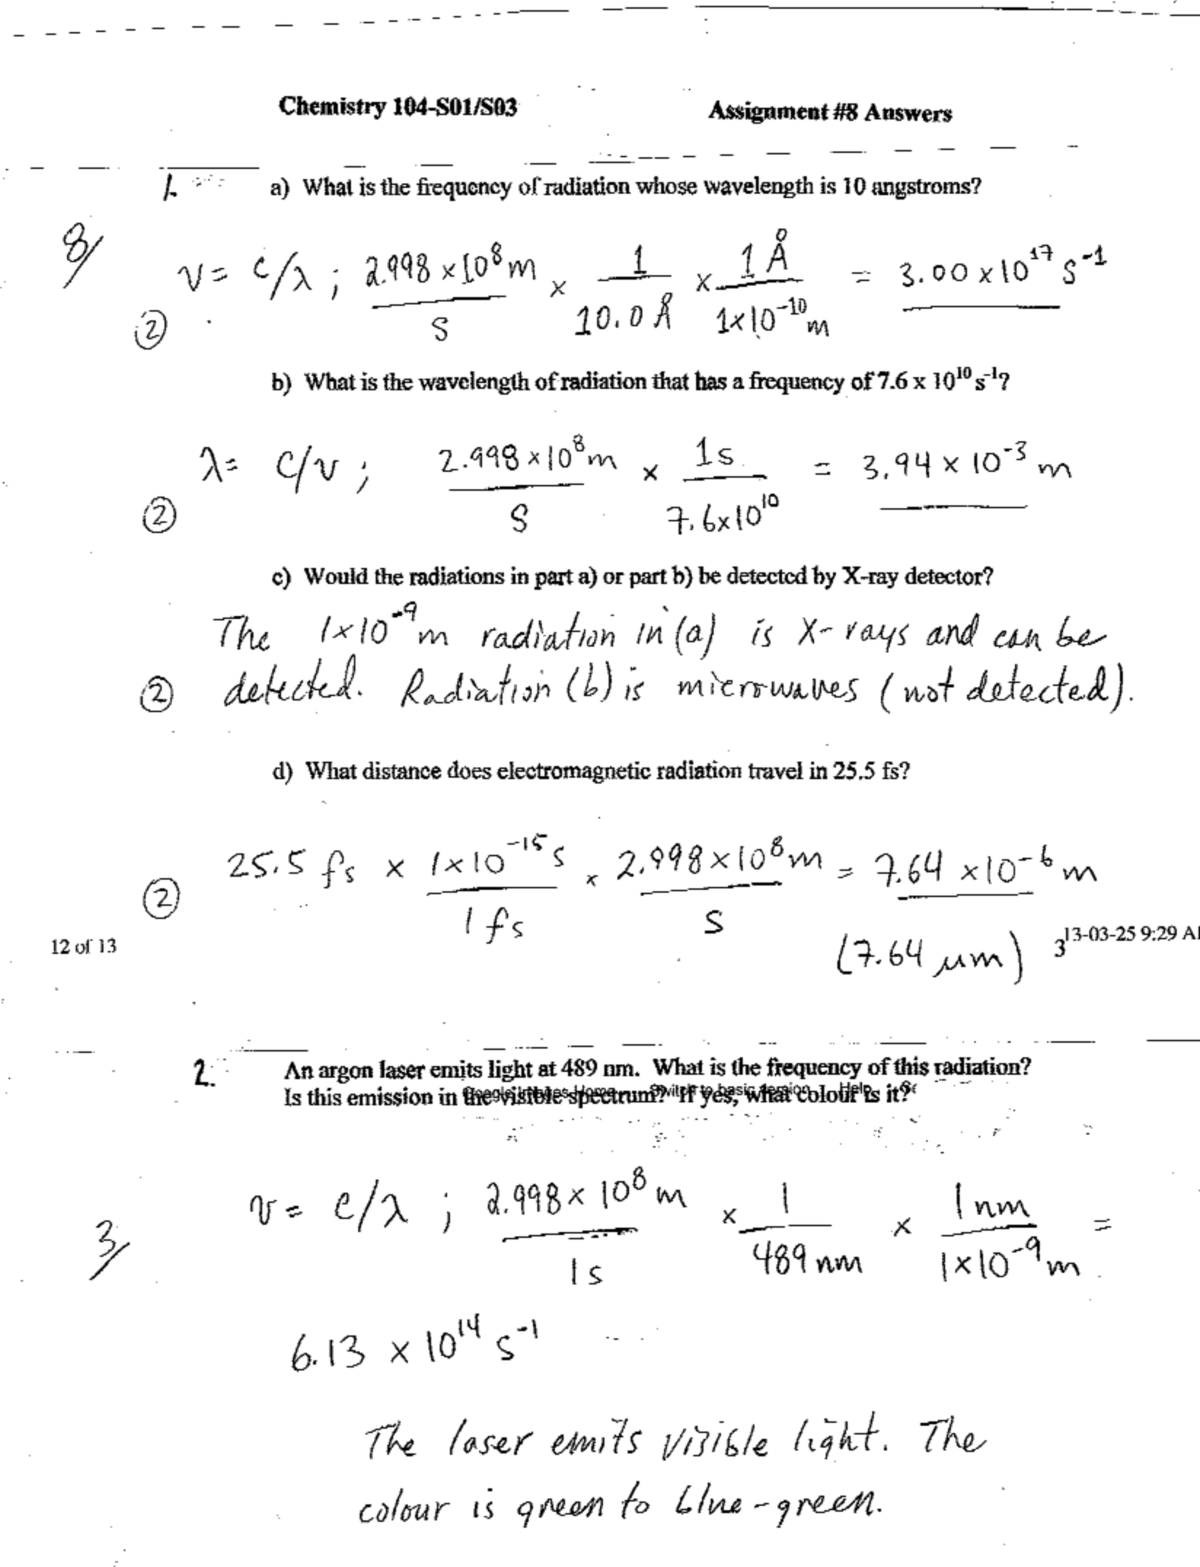 Chemistry 104-S01/S03 Assignment #8 Answers
1. a) What is the frequency of radiation whose wavelength is 10 angstroms?
8/
ν = c/λ ; 2.998 x 10⁸ m / s x 1 / 10.0 Å x 1 Å / 1x10⁻¹⁰ m = 3.00 x 10¹⁷ s⁻¹
②
b) What is the wavelength of radiation that has a frequency of 7.6 x 10¹⁰ s⁻¹?
λ = c/ν ; 2.998 x 10⁸ m / s x 1s / 7.6x10¹⁰ = 3.94 x 10⁻³ m
②
c) Would the radiations in part a) or part b) be detected by X-ray detector?
The 1x10⁻⁹ m radiation in (a) is X-rays and can be
② detected. Radiation (b) is microwaves (not detected).
d) What distance does electromagnetic radiation travel in 25.5 fs?
25.5 fs x 1x10⁻¹⁵ s / 1 fs x 2.998x10⁸ m / s = 7.64 x10⁻⁶ m
②
12 of 13 (7.64 μm) 3 13-03-25 9:29 A
2. An argon laser emits light at 489 nm. What is the frequency of this radiation?
Is this emission in the visible spectrum? If yes, what colour is it?
ν = c/λ ; 2.998 x 10⁸ m / 1s x 1 / 489 nm x 1 nm / 1x10⁻⁹ m =
3/
6.13 x 10¹⁴ s⁻¹
The laser emits visible light. The
colour is green to blue-green.